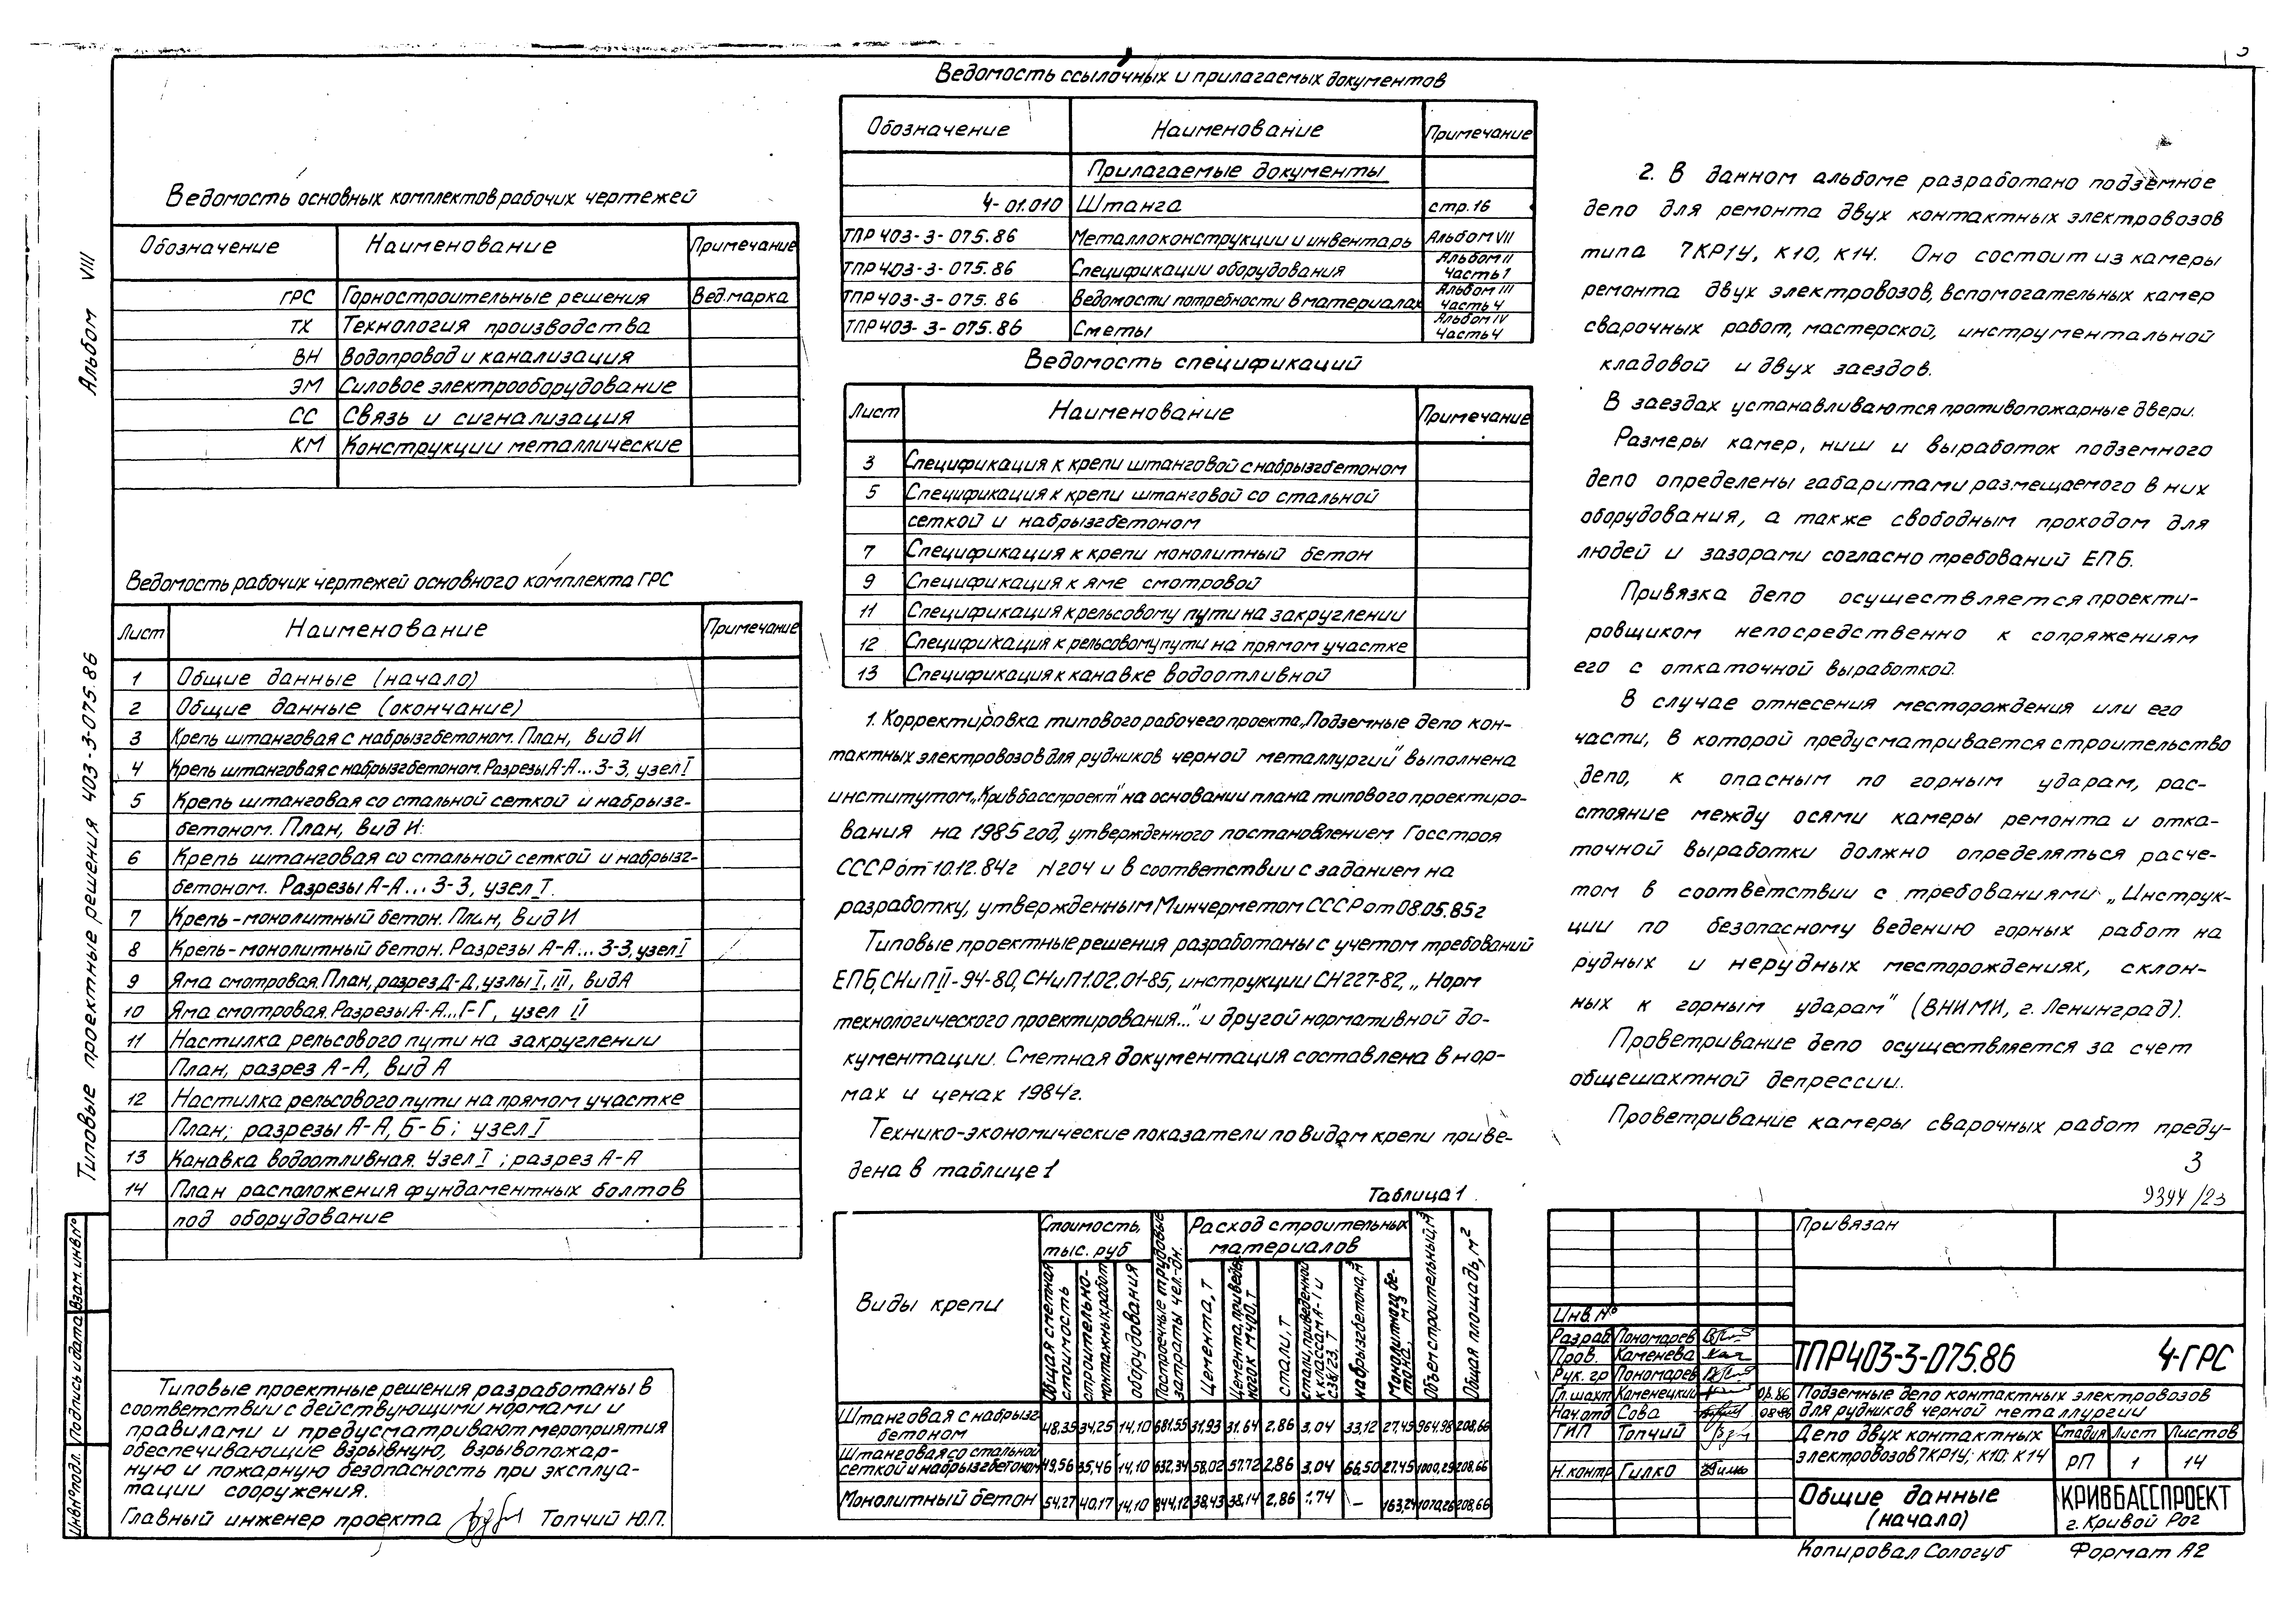 Альбом VIII
Типовые проектные решения 403-3-075.86
Ведомость основных комплектов рабочих чертежей
Обозначение Наименование Примечание
ГРС Горностроительные решения Вед.марка
ТХ Технология производства
ВН Водопровод и канализация
ЭМ Силовое электрооборудование
СС Связь и сигнализация
КМ Конструкции металлические
Ведомость рабочих чертежей основного комплекта ГРС
Лист Наименование Примечание
1 Общие данные (начало)
2 Общие данные (окончание)
3 Крепь штанговая с набрызгбетоном. План, вид И
4 Крепь штанговая с набрызгбетоном. Разрезы А-А...З-З, узел I
5 Крепь штанговая со стальной сеткой и набрызг-
бетоном. План, вид И.
6 Крепь штанговая со стальной сеткой и набрызг-
бетоном. Разрезы А-А...З-З, узел I.
7 Крепь-монолитный бетон. План, вид И
8 Крепь-монолитный бетон. Разрезы А-А...З-З, узел I
9 Яма смотровая. План, разрез Д-Д, узлы I, III, вид А
10 Яма смотровая. Разрезы А-А...Г-Г, узел II
11 Настилка рельсового пути на закруглении
План, разрез А-А, вид А
12 Настилка рельсового пути на прямом участке
План; разрезы А-А, Б-Б; узел I
13 Канавка водоотливная. Узел I; разрез А-А
14 План расположения фундаментных болтов
под оборудование
Типовые проектные решения разработаны в
соответствии с действующими нормами и
правилами и предусматривают мероприятия
обеспечивающие взрывную, взрывопожар-
ную и пожарную безопасность при эксплуа-
тации сооружения.
Главный инженер проекта Топчий Ю.П.
Инв.№подл. Подпись и дата Взам.инв.№
Ведомость ссылочных и прилагаемых документов
Обозначение Наименование Примечание
Прилагаемые документы
4-01.010 Штанга стр.16
ТПР 403-3-075.86 Металлоконструкции и инвентарь Альбом VII
ТПР 403-3-075.86 Спецификации оборудования Альбом II Часть 1
ТПР 403-3-075.86 Ведомости потребности в материалах Альбом III Часть 4
ТПР 403-3-075.86 Сметы Альбом IV Часть 4
Ведомость спецификаций
Лист Наименование Примечание
3 Спецификация к крепи штанговой с набрызгбетоном
5 Спецификация к крепи штанговой со стальной
сеткой и набрызгбетоном
7 Спецификация к крепи монолитный бетон
9 Спецификация к яме смотровой
11 Спецификация к рельсовому пути на закруглении
12 Спецификация к рельсовому пути на прямом участке
13 Спецификация к канавке водоотливной
1. Корректировка типового рабочего проекта „Подземные депо кон-
тактных электровозов для рудников черной металлургии" выполнена
институтом „Кривбасспроект" на основании плана типового проектиро-
вания на 1985 год, утвержденного постановлением Госстроя
СССР от 10.12.84г N204 и в соответствии с заданием на
разработку, утвержденным Минчерметом СССР от 08.05.85г
Типовые проектные решения разработаны с учетом требований
ЕПБ, СНиП II-94-80, СНиП 1.02.01-85, инструкции СН 227-82, „Норм
технологического проектирования..." и другой нормативной до-
кументации. Сметная документация составлена в нор-
мах и ценах 1984г.
Технико-экономические показатели по видам крепи приве-
дена в таблице 1
Таблица 1
Виды крепи Стоимость, тыс. руб Построечные трудовые затраты чел.-дн. Расход строительных материалов Объем строительный, м³ Общая площадь, м²
Общая сметная стоимость строительно-монтажных работ оборудования Цемента, т Цемента, приведенного к М400, т стали, т стали, приведенной к классам А-1 и С38/23, т набрызгбетона, м³ Монолитного бетона, м3
Штанговая с набрызг-
бетоном 48.35 34.25 14.10 681.55 31.93 31.64 2.86 3.04 33.12 27.45 964.98 208.66
Штанговая со стальной
сеткой и набрызгбетоном 49.56 35.46 14.10 692.34 58.02 57.72 2.86 3.04 66.50 27.45 1000.29 208.66
Монолитный бетон 54.27 40.17 14.10 844.12 38.43 38.14 2.86 1.74 – 163.24 1070.26 208.66
2. В данном альбоме разработано подземное
депо для ремонта двух контактных электровозов
типа 7КР1У, К10, К14. Оно состоит из камеры
ремонта двух электровозов, вспомогательных камер
сварочных работ, мастерской, инструментальной
кладовой и двух заездов.
В заездах устанавливаются противопожарные двери.
Размеры камер, ниш и выработок подземного
депо определены габаритами размещаемого в них
оборудования, а также свободным проходом для
людей и зазорами согласно требований ЕПБ.
Привязка депо осуществляется проекти-
ровщиком непосредственно к сопряжениям
его с откаточной выработкой.
В случае отнесения месторождения или его
части, в которой предусматривается строительство
депо, к опасным по горным ударам, рас-
стояние между осями камеры ремонта и отка-
точной выработки должно определяться расче-
том в соответствии с требованиями „Инструк-
ции по безопасному ведению горных работ на
рудных и нерудных месторождениях, склон-
ных к горным ударам" (ВНИМИ, г. Ленинград).
Проветривание депо осуществляется за счет
общешахтной депрессии.
Проветривание камеры сварочных работ преду-
3
9344/23
Привязан
Инв.№
Разраб. Пономарев
Пров. Каменева
Рук. гр Пономарев
Гл.шахт Каменецкий 08.86
Нач.отд Сова 08.86
ГИП Топчий
Н.контр Гилко
ТПР403-3-075.86 4-ГРС
Подземные депо контактных электровозов
для рудников черной металлургии
Депо двух контактных
электровозов 7КР1У; К10; К14
Стадия Лист Листов
РП 1 14
Общие данные
(начало)
КРИВБАССПРОЕКТ
г. Кривой Рог
Копировал Сологуб Формат А2